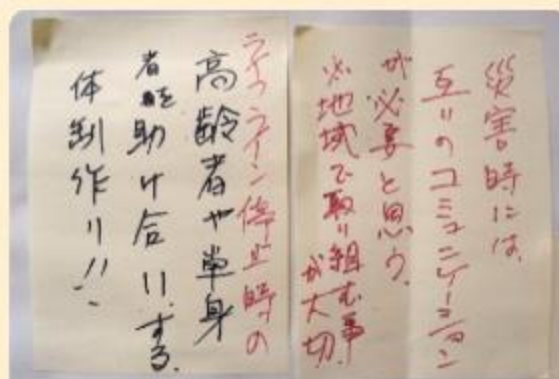 災害時には、
互いのコミュニケーション
が必要と思う。
地域で取り組む事
が大切。
ライフライン停止時の
高齢者や単身
者を助け合いする。
体制作り!!